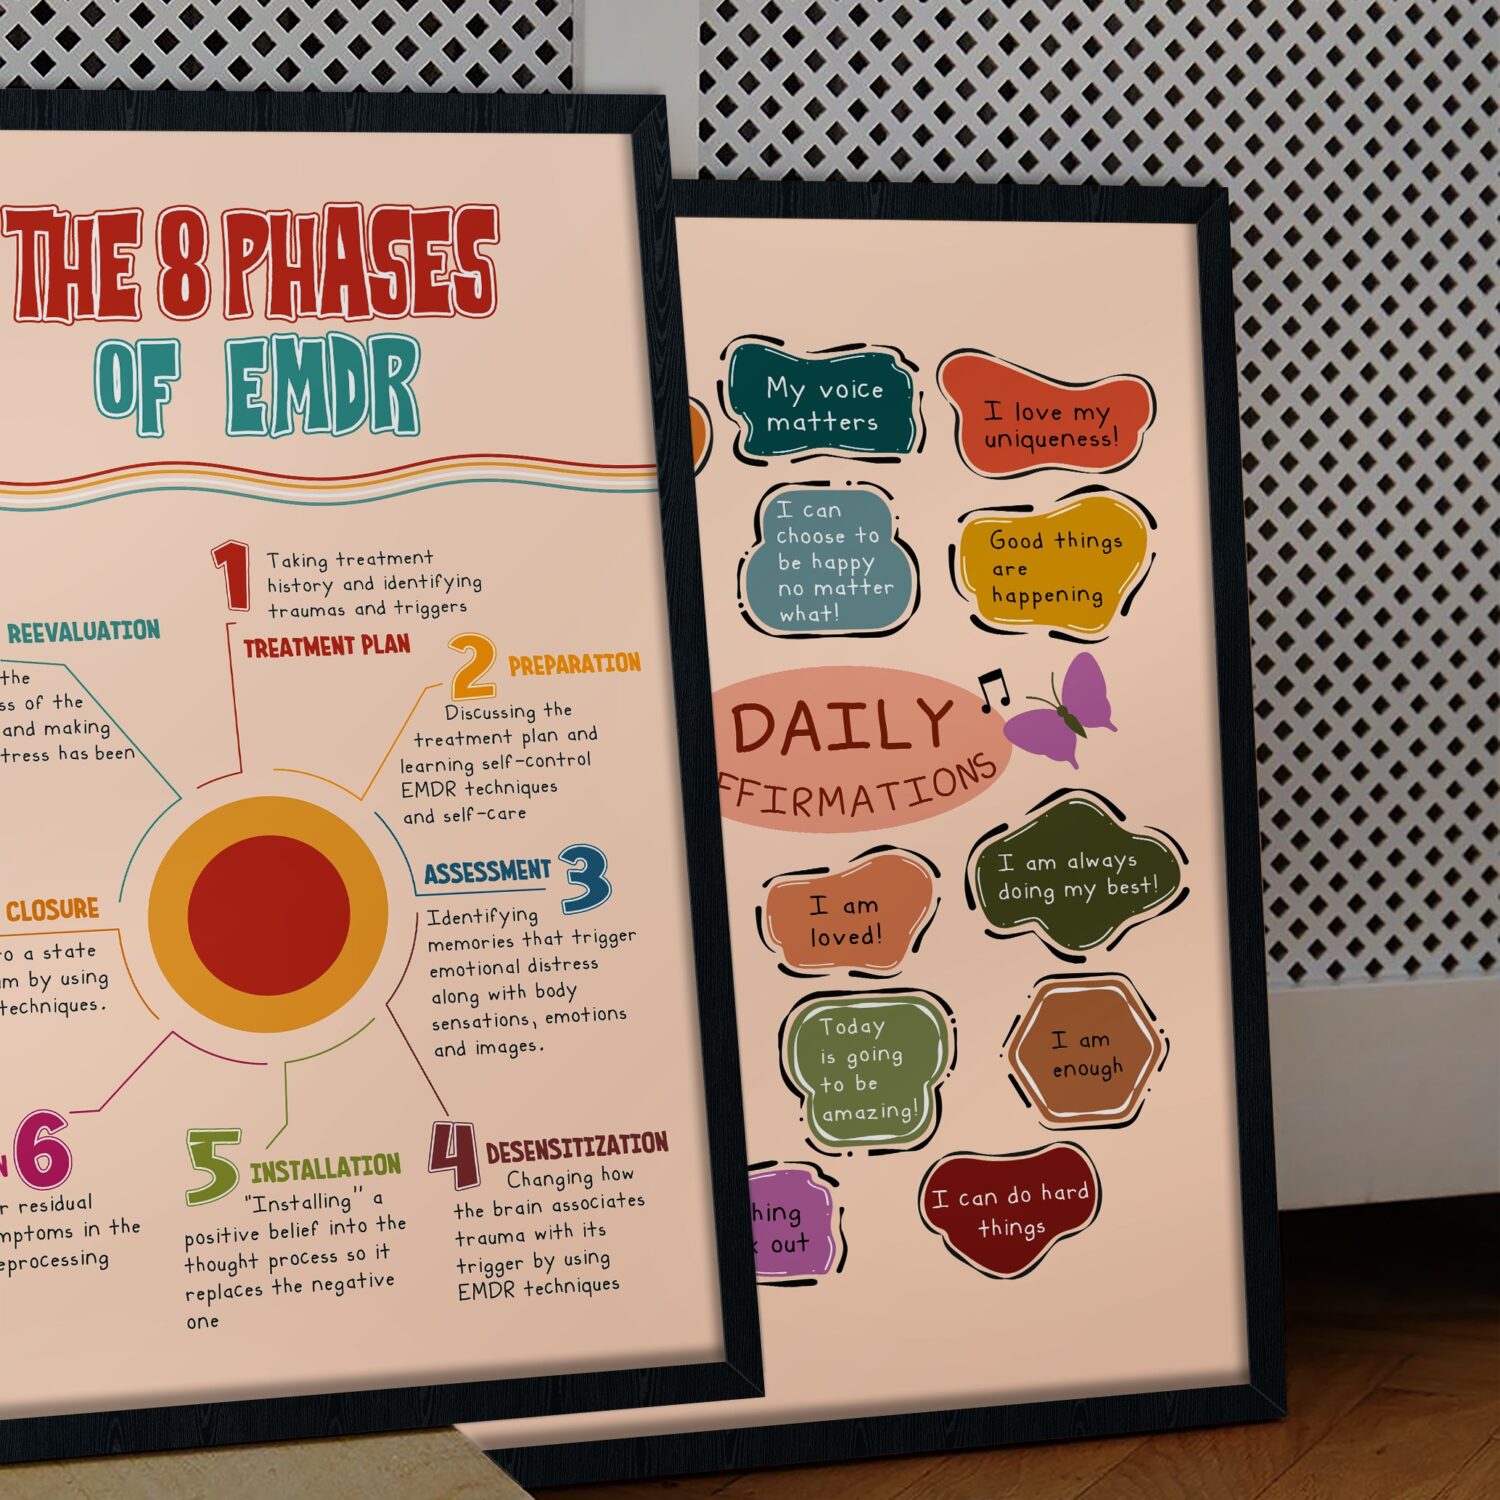 THE 8 PHASES
OF EMDR
1
Taking treatment
history and identifying
traumas and triggers
TREATMENT PLAN
2
PREPARATION
Discussing the
treatment plan and
learning self-control
EMDR techniques
and self-care
ASSESSMENT 3
Identifying
memories that trigger
emotional distress
along with body
sensations, emotions
and images.
4 DESENSITIZATION
Changing how
the brain associates
trauma with its
trigger by using
EMDR techniques
5 INSTALLATION
"Installing" a
positive belief into the
thought process so it
replaces the negative
one
6
residual
in the
CLOSURE
a state
by using
techniques.
REEVALUATION
the
of the
and making
has been
My voice
matters
I love my
uniqueness!
I can
choose to
be happy
no matter
what!
Good things
are
happening
DAILY
FFIRMATIONS
I am
loved!
I am always
doing my best!
Today
is going
to be
amazing!
I am
enough
out
I can do hard
things